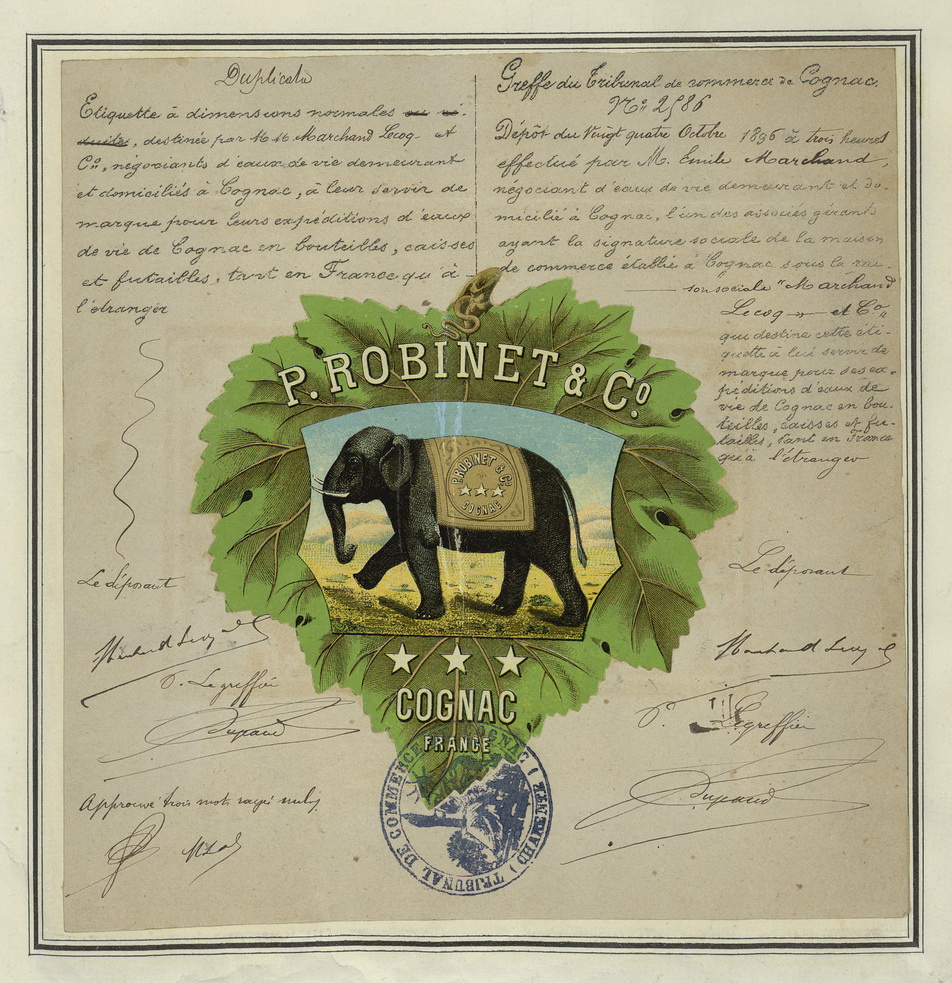 Duplicata
Etiquette à dimensions normales ou ré-
duites, destinée par M.M. Marchand Lecoq et
Cº, négociants d'eaux de vie demeurant
et domiciliés à Cognac, à leur servir de
marque pour leurs expéditions d'eaux
de vie de Cognac en bouteilles, caisses
et futailles, tant en France qu'à
l'étranger
Le déposant
Marchand Lecoq
P. Le greffier
Approuvé trois mots rayés nuls
Greffe du Tribunal de commerce de Cognac.
Nº 2586
Dépôt du Vingt quatre Octobre 1896 à trois heures
effectué par M. Emile Marchand,
négociant d'eaux de vie demeurant et do-
micilié à Cognac, l'un des associés gérants
ayant la signature sociale de la maison
de commerce établie à Cognac sous la rai-
son sociale "Marchand
Lecoq et Cº"
qui destine cette éti-
quette à lui servir de
marque pour ses ex-
péditions d'eaux de
vie de Cognac en bou-
teilles, caisses et fu-
tailles, tant en France
qu'à l'étranger
Le déposant
Marchand Lecoq
P. Le greffier
P. ROBINET & Cº
P. ROBINET & Cº
COGNAC
COGNAC
FRANCE
TRIBUNAL DE COMMERCE COGNAC (CHARENTE)